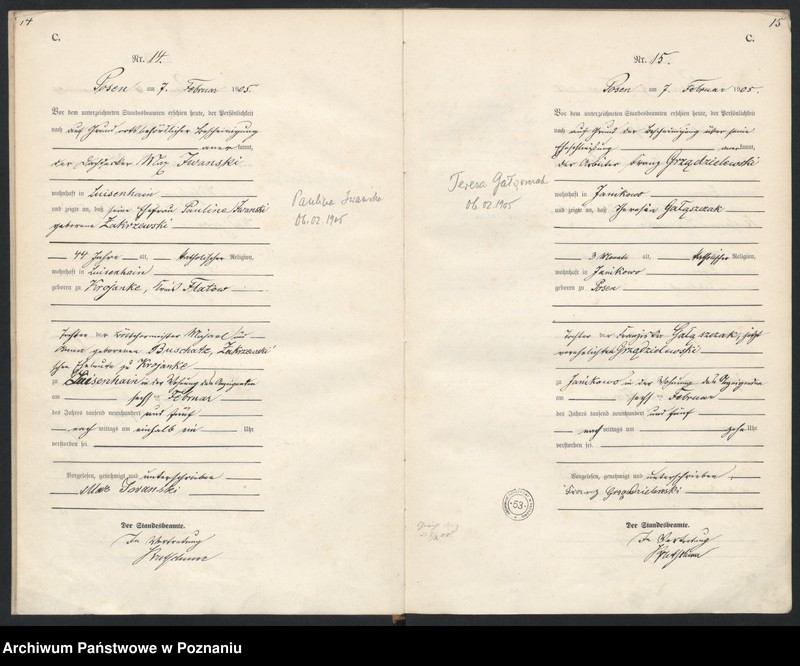 14
C.
Nr. 14.
Posen am 7. Februar 1905.
Vor dem unterzeichneten Standesbeamten erschien heute, der Persönlichkeit
nach auf Grund ortsbehördlicher Bescheinigung
anerkannt,
der Max Iwanski
wohnhaft in Luisenhain
und zeigte an, daß seine Ehefrau Pauline Iwanski
geborene Zakrzewski
44 Jahre alt, katholischer Religion,
wohnhaft in Luisenhain
geboren zu Krojanke, Kreis Flatow
Tochter der Böttchermeister Michael und
Anna geborenen Buschatz, Zakrzewski
schen Eheleute zu Krojanke
zu Luisenhain in der Wohnung des Anzeigenden
am sechsten Februar
des Jahres tausend neunhundert und fünf
nachmittags um einhalb ein Uhr
verstorben sei.
Vorgelesen, genehmigt und unterschrieben
Max Iwanski
Der Standesbeamte.
In Vertretung
Paulina Iwańska
06.02.1905
15
C.
Nr. 15.
Posen am 7. Februar 1905.
Vor dem unterzeichneten Standesbeamten erschien heute, der Persönlichkeit
nach auf Grund der Bescheinigung über seine
Eheschließung anerkannt,
der Arbeiter Franz Grządzielewski
wohnhaft in Janikowo
und zeigte an, daß Theresia Gałązczak
3 Monate alt, katholischer Religion,
wohnhaft in Janikowo
geboren zu Posen
Tochter der Franziska Gałązczak, jetzt
verehelichten Grządzielewski
zu Janikowo in der Wohnung des Anzeigenden
am sechsten Februar
des Jahres tausend neunhundert und fünf
nachmittags um zehn Uhr
verstorben sei.
Vorgelesen, genehmigt und unterschrieben
Franz Grządzielewski
Der Standesbeamte.
In Vertretung
Teresa
06.02.1905
53
Archiwum Państwowe w Poznaniu